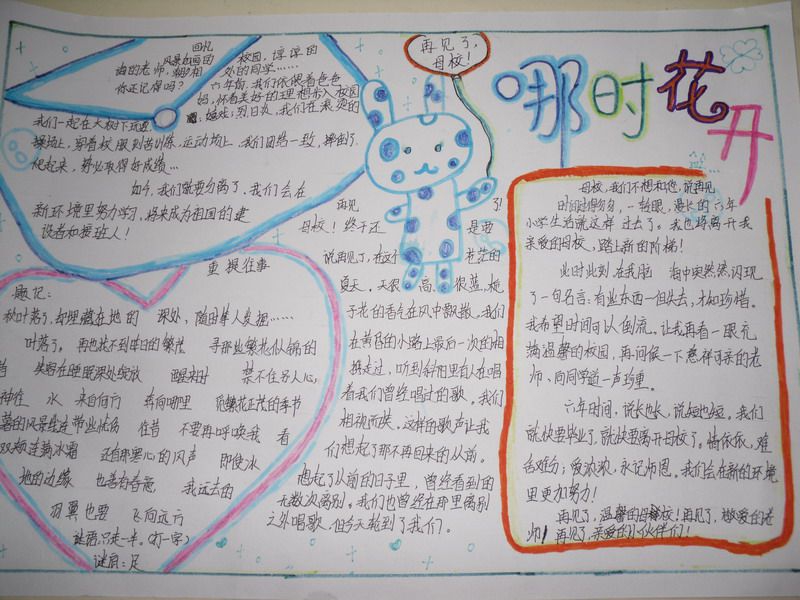 哪时花开
再见了，
母校！
回忆
风景如画的校园，谆谆的
你还记得吗？六年前，我们依偎着爸爸
妈，怀着美好的理想步入校园
我们一起在大树下玩逛
操场上，穿着校服刻苦训练，运动场上，我们团结一致，摔倒了
爬起来，势必取得好成绩…
如今，我们就要分离了，我们会在
新环境里努力学习，将来成为祖国的建
设者和接班人！
重提往事
题记：
秋叶落了，却埋藏在地的深处，随时等人发掘……
叶落了。再也找不到昨日的繁花
寻那些繁花似锦的
笑容在睡眠深处绽放
醒来时
禁不住另人心
种在
水
来自何方
奔向哪里
还有那寒心的风声
即使冰
地的边缘
也善有春意
我远去的
羽翼也要
飞向远方
谜语：只走一半。(打一字)
谜底：足
再见了！
母校！终于还是要
说再见了，在这个茫茫的
夏天，天很高，很蓝，栀
子花的香气在风中飘散。我们
在黄昏的小路上最后一次的相
携走过，听到斜阳里有人在唱
着我们曾经唱过的歌。我们
相视而笑，这样的歌声让我
们想起了那不再回来的从前。
想起了从前的日子里，曾经看到的
无数次离别。我们也曾经在那里离别
之外唱歌，但今天轮到了我们。
母校，我们不想和您说再见
时间过得匆匆，一转眼，漫长的六年
小学生活就这样过去了。我也将离开我
亲爱的母校，踏上新的阶梯！
此时此刻，在我脑海中突然然闪现
了一句名言：有些东西一但失去，才知珍惜。
我希望时间可以倒流。让我再看一眼充
满温馨的校园，再问候一下慈祥可亲的老
师，向同学道一声珍重。
六年时间，说长也长，说短也短。我们
就快要毕业了，就快要离开母校了。情依依，难
舍难分；爱浓浓，永记师恩。我们会在新的环境
里更加努力！
再见了，温馨的母校！再见了，敬爱的老
师！再见了，亲爱的小伙伴们！